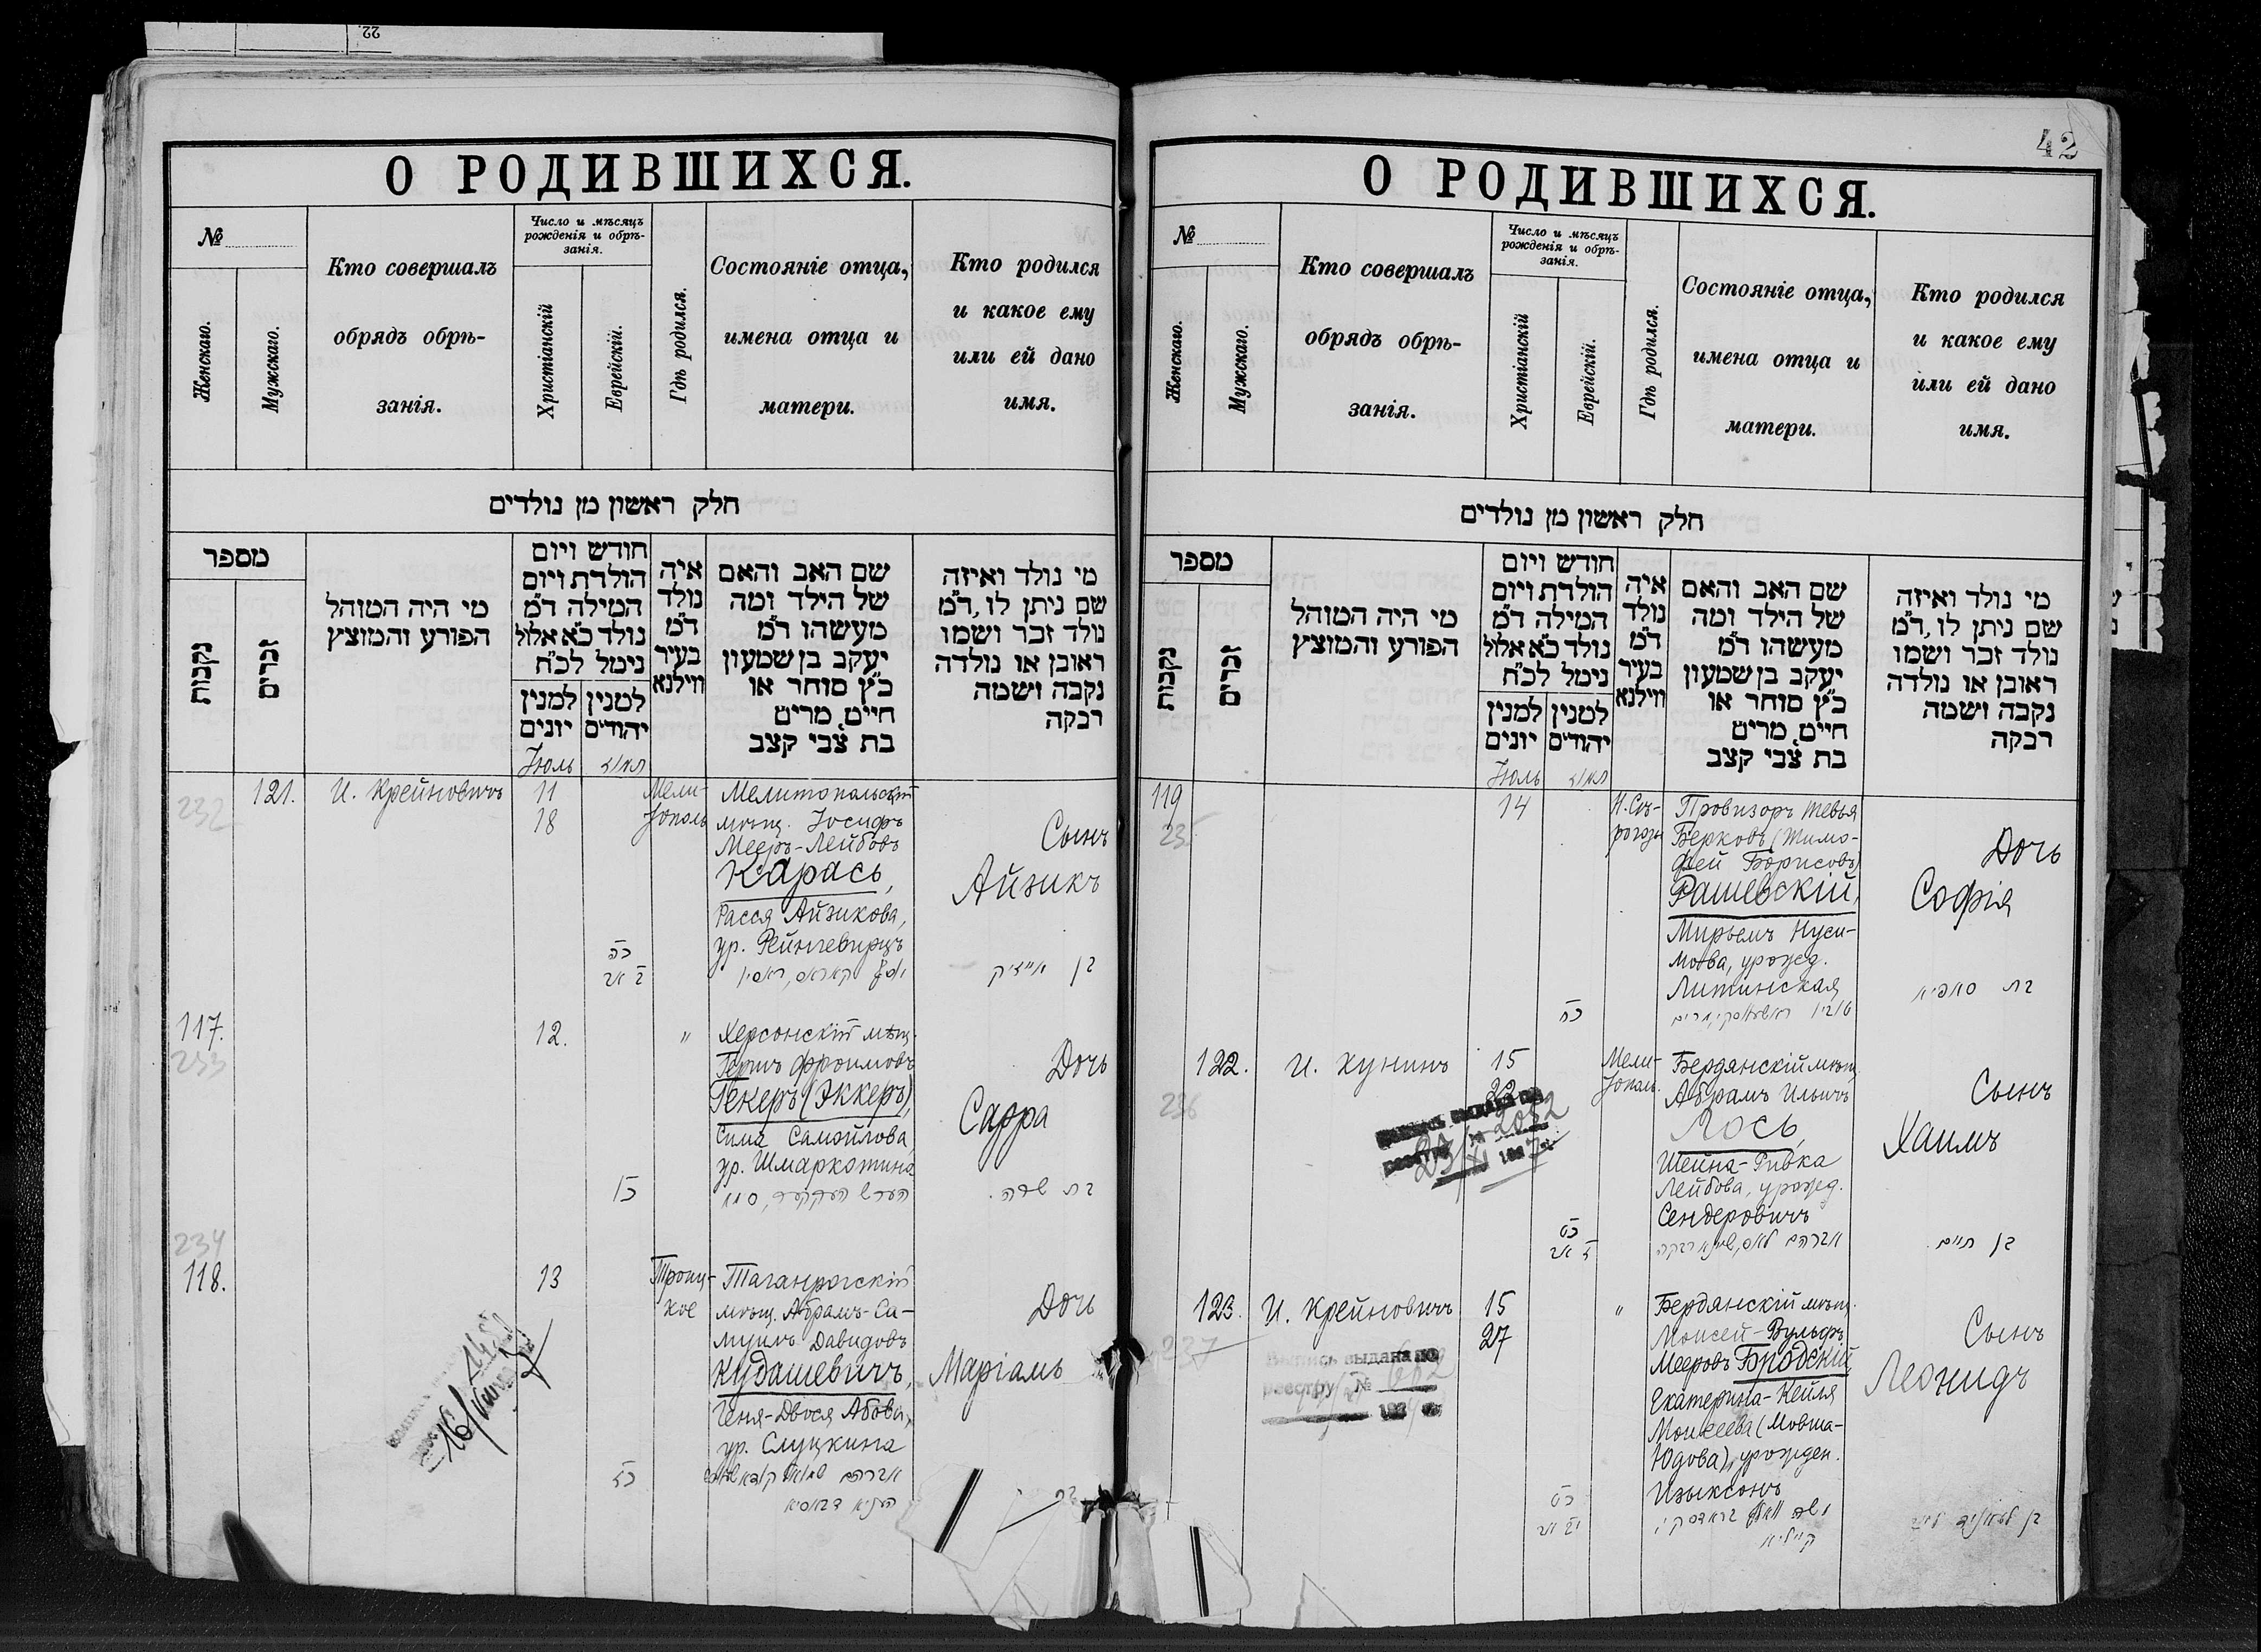 22
О РОДИВШИХСЯ.
№
Женскаго.
Мужскаго.
Кто совершалъ
обрядъ обрѣ-
занія.
Число и мѣсяцъ
рожденія и обрѣ-
занія.
Христіанскій
Еврейскій.
Гдѣ родился.
Состояніе отца,
имена отца и
матери.
Кто родился
и какое ему
или ей дано
имя.
חלק ראשון מן נולדים
מספר
נקבות
זכרים
מי היה המוהל
הפורע והמוצץ
חודש ויום
הולדת ויום
המילה ד״מ
נולד כ״א אלול
נימל לכ״ח
למנין
יונים
למנין
יהודים
איה
נולד
ד״מ
בעיר
ווילנא
שם האב והאם
של הילד ומה
מעשהו ד״מ
יעקב בן שמעון
כ״ץ סוחר או
חייט, מרים
בת צבי קצב
מי נולד ואיזה
שם ניתן לו, ד״מ
נולד זכר ושמו
ראובן או נולדה
נקבה ושמה
רבקה
Іюль
תמוז
232
121.
И. Крейновичъ
11
18
Мели-
тополь
Мелитопольскій
мѣщ. Іосифъ
Мееръ-Лейбовъ
Карась,
Расся Айзикова,
ур. Рейнгевирцъ
Сынъ
Айзикъ
כה
ב אב
יוסף קאראס, ראסיא
בן אייזיק
117.
233
12.
"
Херсонскій мѣщ.
Гершъ Фроимовъ
Гекеръ (Эккеръ),
Сима Самойлова,
ур. Шмаркотина
Дочь
Сарра
כו
בת שרה.
234
118.
13
Троиц-
кое
Таганрогскій
мѣщ. Абрамъ-Са-
муилъ Давидовъ
Кудашевичъ,
Геня-Двося Абова,
ур. Слуцкина
Дочь
Маріамь
כז
בת
42
О РОДИВШИХСЯ.
№
Женскаго.
Мужскаго.
Кто совершалъ
обрядъ обрѣ-
занія.
Число и мѣсяцъ
рожденія и обрѣ-
занія.
Христіанскій
Еврейскій.
Гдѣ родился.
Состояніе отца,
имена отца и
матери.
Кто родился
и какое ему
или ей дано
имя.
חלק ראשון מן נולדים
מספר
נקבות
זכרים
מי היה המוהל
הפורע והמוצץ
חודש ויום
הולדת ויום
המילה ד״מ
נולד כ״א אלול
נימל לכ״ח
למנין
יונים
למנין
יהודים
איה
נולד
ד״מ
בעיר
ווילנא
שם האב והאם
של הילד ומה
מעשהו ד״מ
יעקב בן שמעון
כ״ץ סוחר או
חייט, מרים
בת צבי קצב
מי נולד ואיזה
שם ניתן לו, ד״מ
נולד זכר ושמו
ראובן או נולדה
נקבה ושמה
רבקה
Іюль
תמוז
119
235
14
Н. Сѣ-
рогозы
Провизоръ Тевья
Берковъ (Тимо-
фей Борисовъ)
Рашевскій,
Мирьемъ Нуси-
мова, урожд.
Литинская
Дочь
Софія
כח
טוביו ראשעווסקי, מרים
בת סופיא
122.
236
И. Хунинъ
15
22
Мели-
тополь.
Бердянскій мѣщ.
Абрамъ Ильичъ
Лось,
Шейна-Ривка
Лейбова, урожд.
Сендеровичъ
Сынъ
Хаимъ
2082
23/XI 1927
כט
אברהם לאס, שיינא רבקה
בן חיים
123.
237
И. Крейновичъ
15
27
"
Бердянскій мѣщ.
Моисей-Вульфъ
Мееровъ Бродскій,
Екатерина-Кейля
Моисеева (Мовша-
Юдова), урожден.
Изыксонъ
Сынъ
Леонидъ
Выпись выдана по
реестру № 602
כט
משה וואלף בראדסקי,
קיילא
בן לעאניד